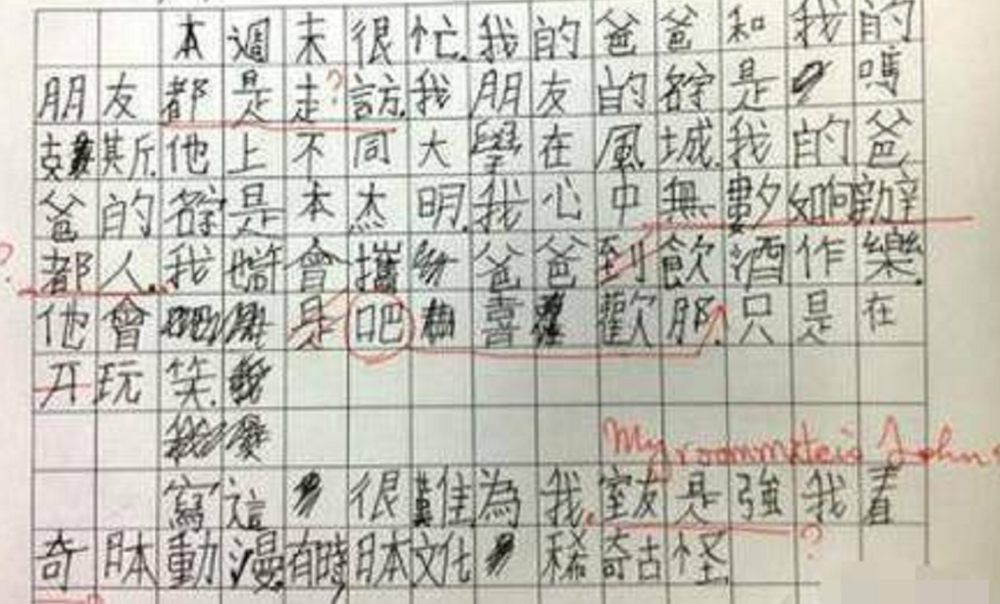 本週末很忙.我的爸爸和我的
朋友都是走?訪.我朋友的名字是嗎
克斯.他上不同大學在風城.我的爸
爸的名字是本杰明.我心中無數如何辦
?都人.我會攜爸爸到飲酒作樂.
他會是吧喜歡那.只是在
开玩笑.
My roommate is John?
寫這很難為我.室友是強我看
?
奇日本動漫.有時,日本文化稀奇古怪.
?